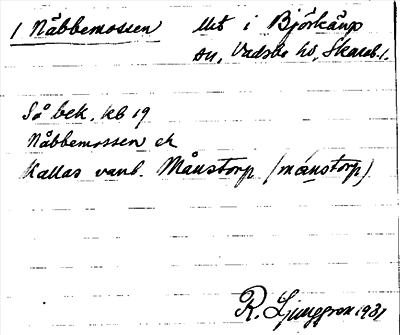 1 Nåbbemossen lht i Björkäng
sn, Vadsbo hd, Skarab.l.
Så bek. kb 19
Nåbbemossen el
kallas vanl. Månstorp (månstorp)
R. Ljunggren 1931